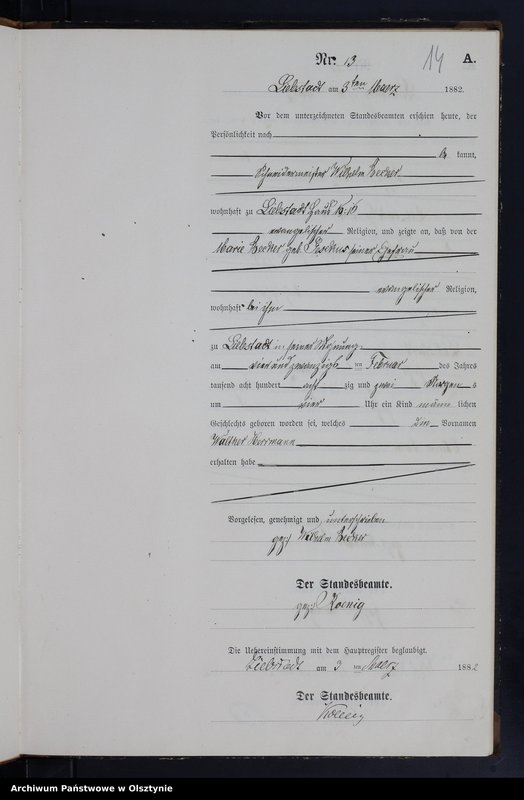 Nr. 13
14
A.
Liebstadt am 3ten Maerz 1882.
Vor dem unterzeichneten Standesbeamten erschien heute, der
Persönlichkeit nach
be kannt,
Schneidermeister Wilhelm Becker
wohnhaft zu Liebstadt Haus
evangelischer Religion, und zeigte an, daß von der
Marie Becker geb. seiner Ehefrau
evangelischer Religion,
wohnhaft bei ihm
zu Liebstadt in seiner Wohnung
am vier und zwanzigsten Februar des Jahres
tausend acht hundert acht zig und zwei Morgens
um vier Uhr ein Kind männ lichen
Geschlechts geboren worden sei, welches den Vornamen
Walther Herrmann
erhalten habe
Vorgelesen, genehmigt und unterschrieben
gez: Wilhelm Becker
Der Standesbeamte.
gez: Koenig
Die Uebereinstimmung mit dem Hauptregister beglaubigt.
Liebstadt am 3 ten Maerz 1882
Der Standesbeamte.
Koenig
Archiwum Państwowe w Olsztynie